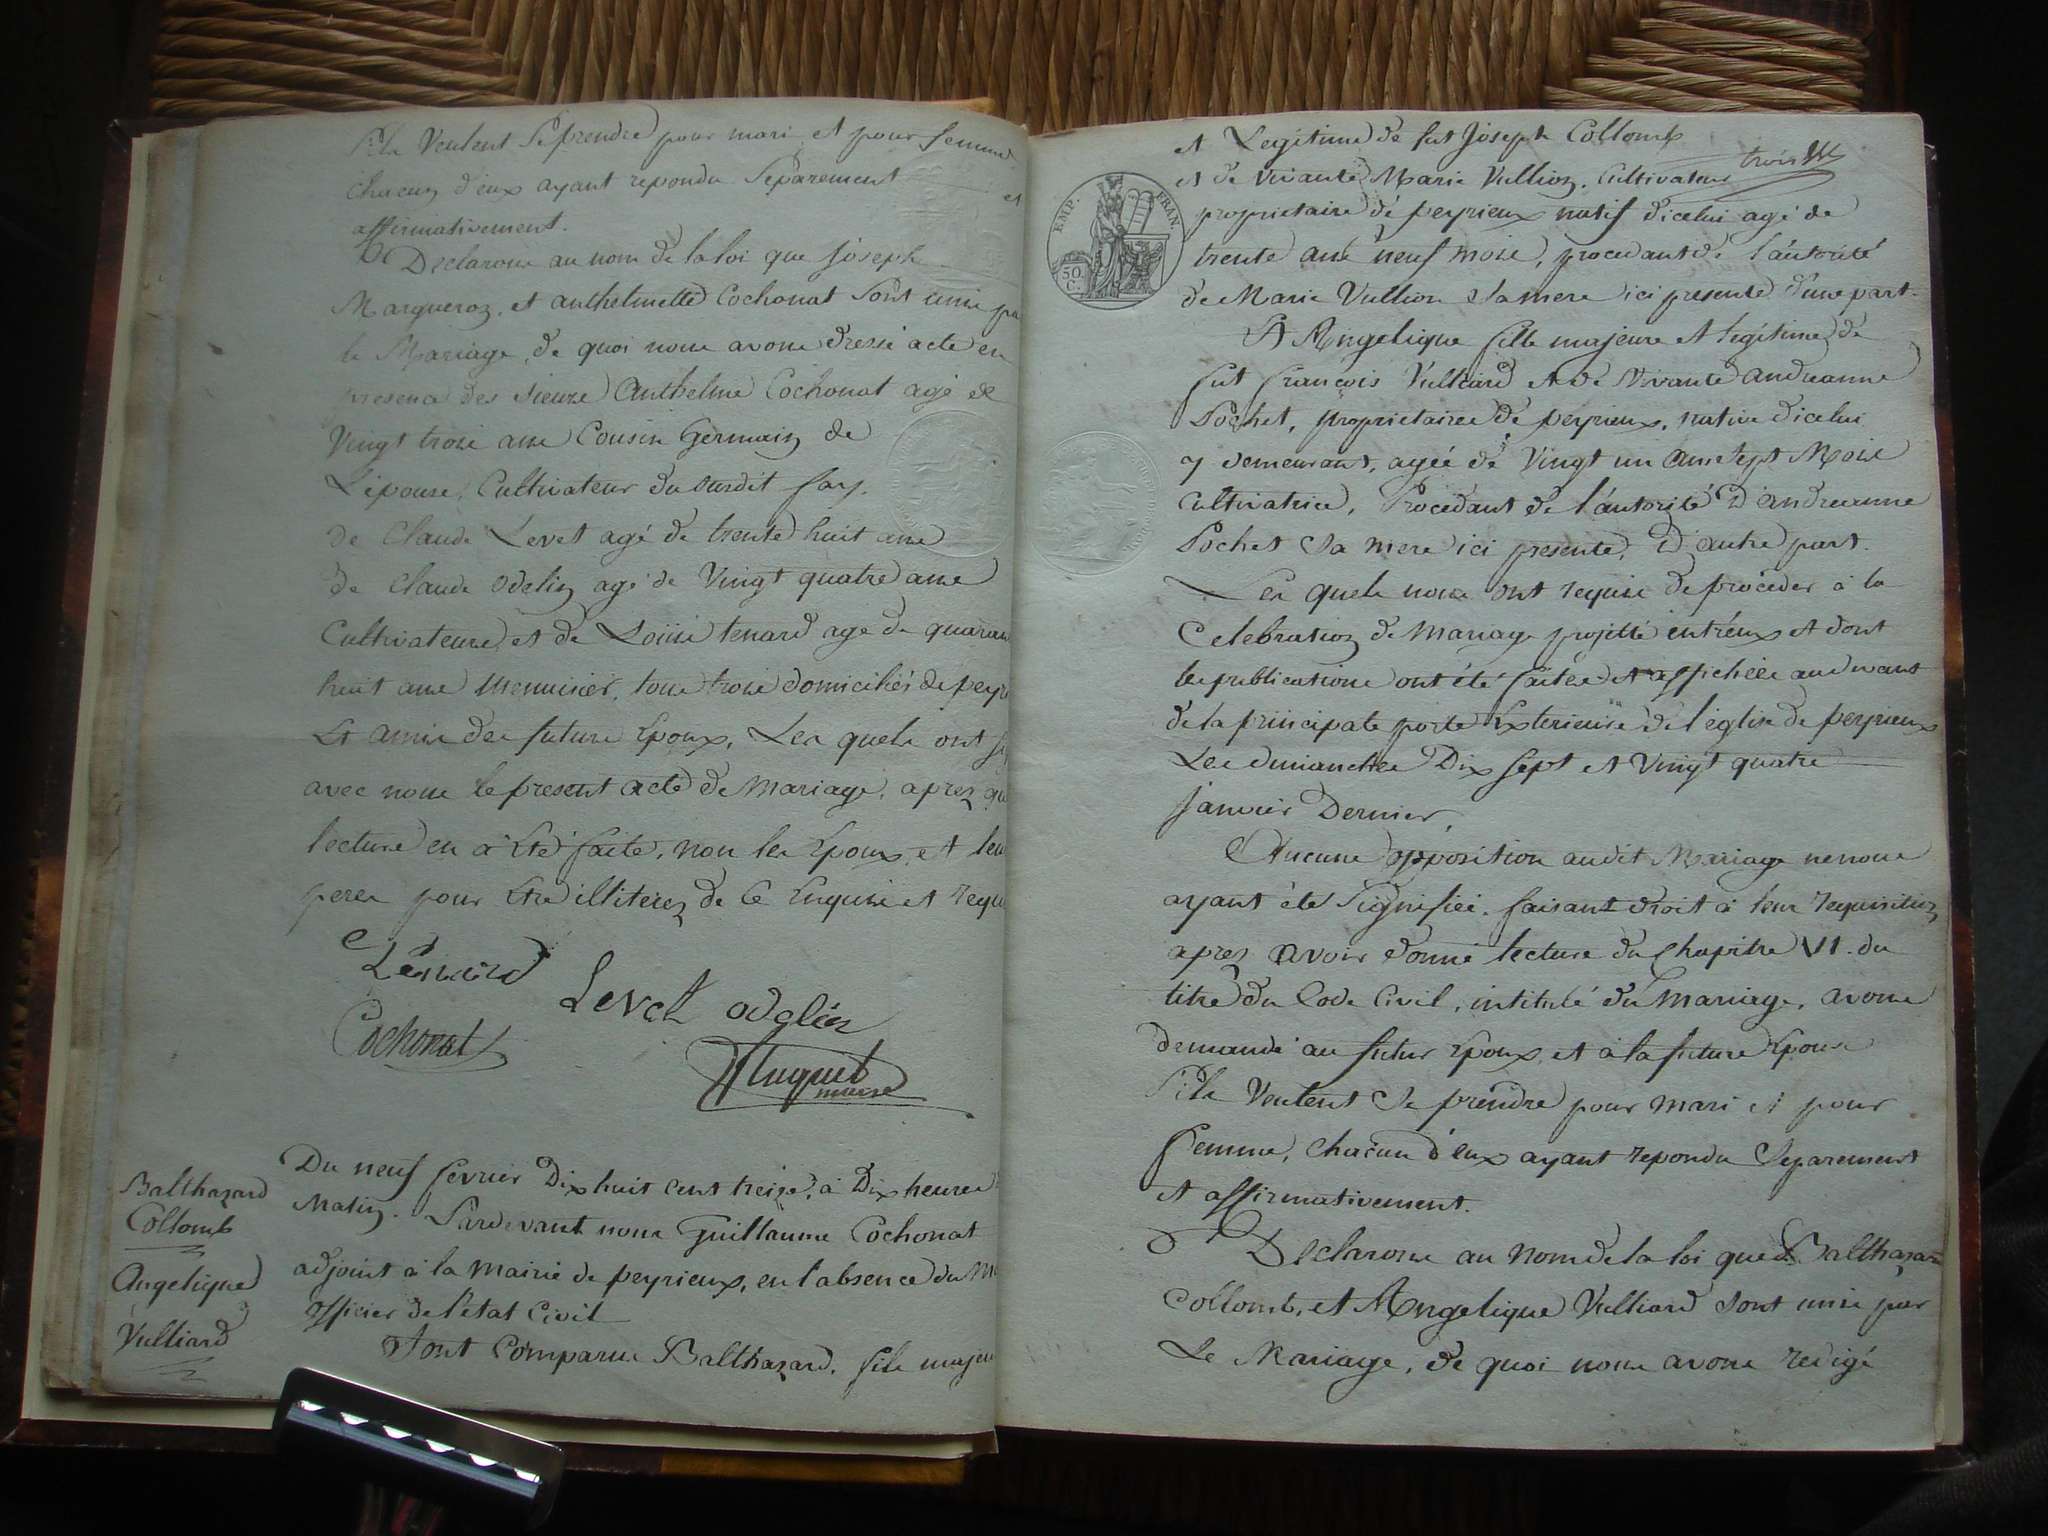 S'ils Veulent Se prendre pour mari et pour femme
chacun d'eux ayant repondu Séparement et
affirmativement.
Declarons au nom de la loi que joseph
Margueroz, et anthelmette Cochonat Sont unis pa
le Mariage, de quoi nous avons dressé acte en
presence des sieurs Anthelme Cochonat agé de
Vingt trois ans Cousin Germain de
L'épouse, Cultivateur du susdit fay,
de Claude Levet agé de trente huit ans
de Claude Odelin agé de Vingt quatre ans
Cultivateurs, et de Loüis tenard agé de quaran
huit ans Menuisier, tous trois domiciliés de peyr
Et amis des futurs Epoux, Les quels ont
avec nous le present acte de Mariage, après qu
lecture en a Eté faite, non les Epoux, et leu
peres pour Etre illiterez de ce Enquis et requ
Ténard
Levet odelin
Cochonat
Huguet
maire
Balthazard
Collomb
Angelique
Vulliard
Du neuf fevrier Dix huit cent treize, à Dix heures
Matin. Pardevant nous Guillaume Cochonat
adjoint à la mairie de peyrieux, en l'absence du M
officier de l'état Civil
Sont Comparus Balthazard, fils majeu
et Legitime de fut Joseph Collomb
trois
et de vivante Marie Vullion, Cultivateur
EMP. FRAN.
50. C.
proprietaire de peyrieux natif d'icelui agé de
trente ans neuf mois, procedant de l'autorité
de Marie Vullion Sa mere ici presente d'une part.
Et Angelique fille majeure et legitime de
fut françois Vulliard et de Vivante andréanne
Pochet, proprietaires de peyrieux, native d'icelui
y demeurant, agée de Vingt un ans sept Mois
Cultivatrice, Procédant de l'autorité D'andréanne
Pochet Sa mere ici presente, D'autre part.
Les quels nous ont requis de procéder à la
Celebration de Mariage projetté entr'eux et dont
les publications ont été faites et affichées au devant
de la principale porte Exterieure de l'église de peyrieux
Les dimanches Dix sept et Vingt quatre
janvier Dernier,
Aucune opposition audit Mariage ne nous
ayant été Signifiée, faisant droit à leur requisition
après avoir donné lecture du Chapitre VI. du
titre du Code Civil, intitulé du Mariage, avons
demandé au futur Epoux, et à la future Epouse
S'ils Veulent Se prendre pour mari et pour
femme, Chacun d'eux ayant repondu Separement
et affirmativement.
Declarons au nom de la loi que Balthazard
Collomb, et Angelique Vulliard Sont unis par
Le Mariage, de quoi nous avons redigé